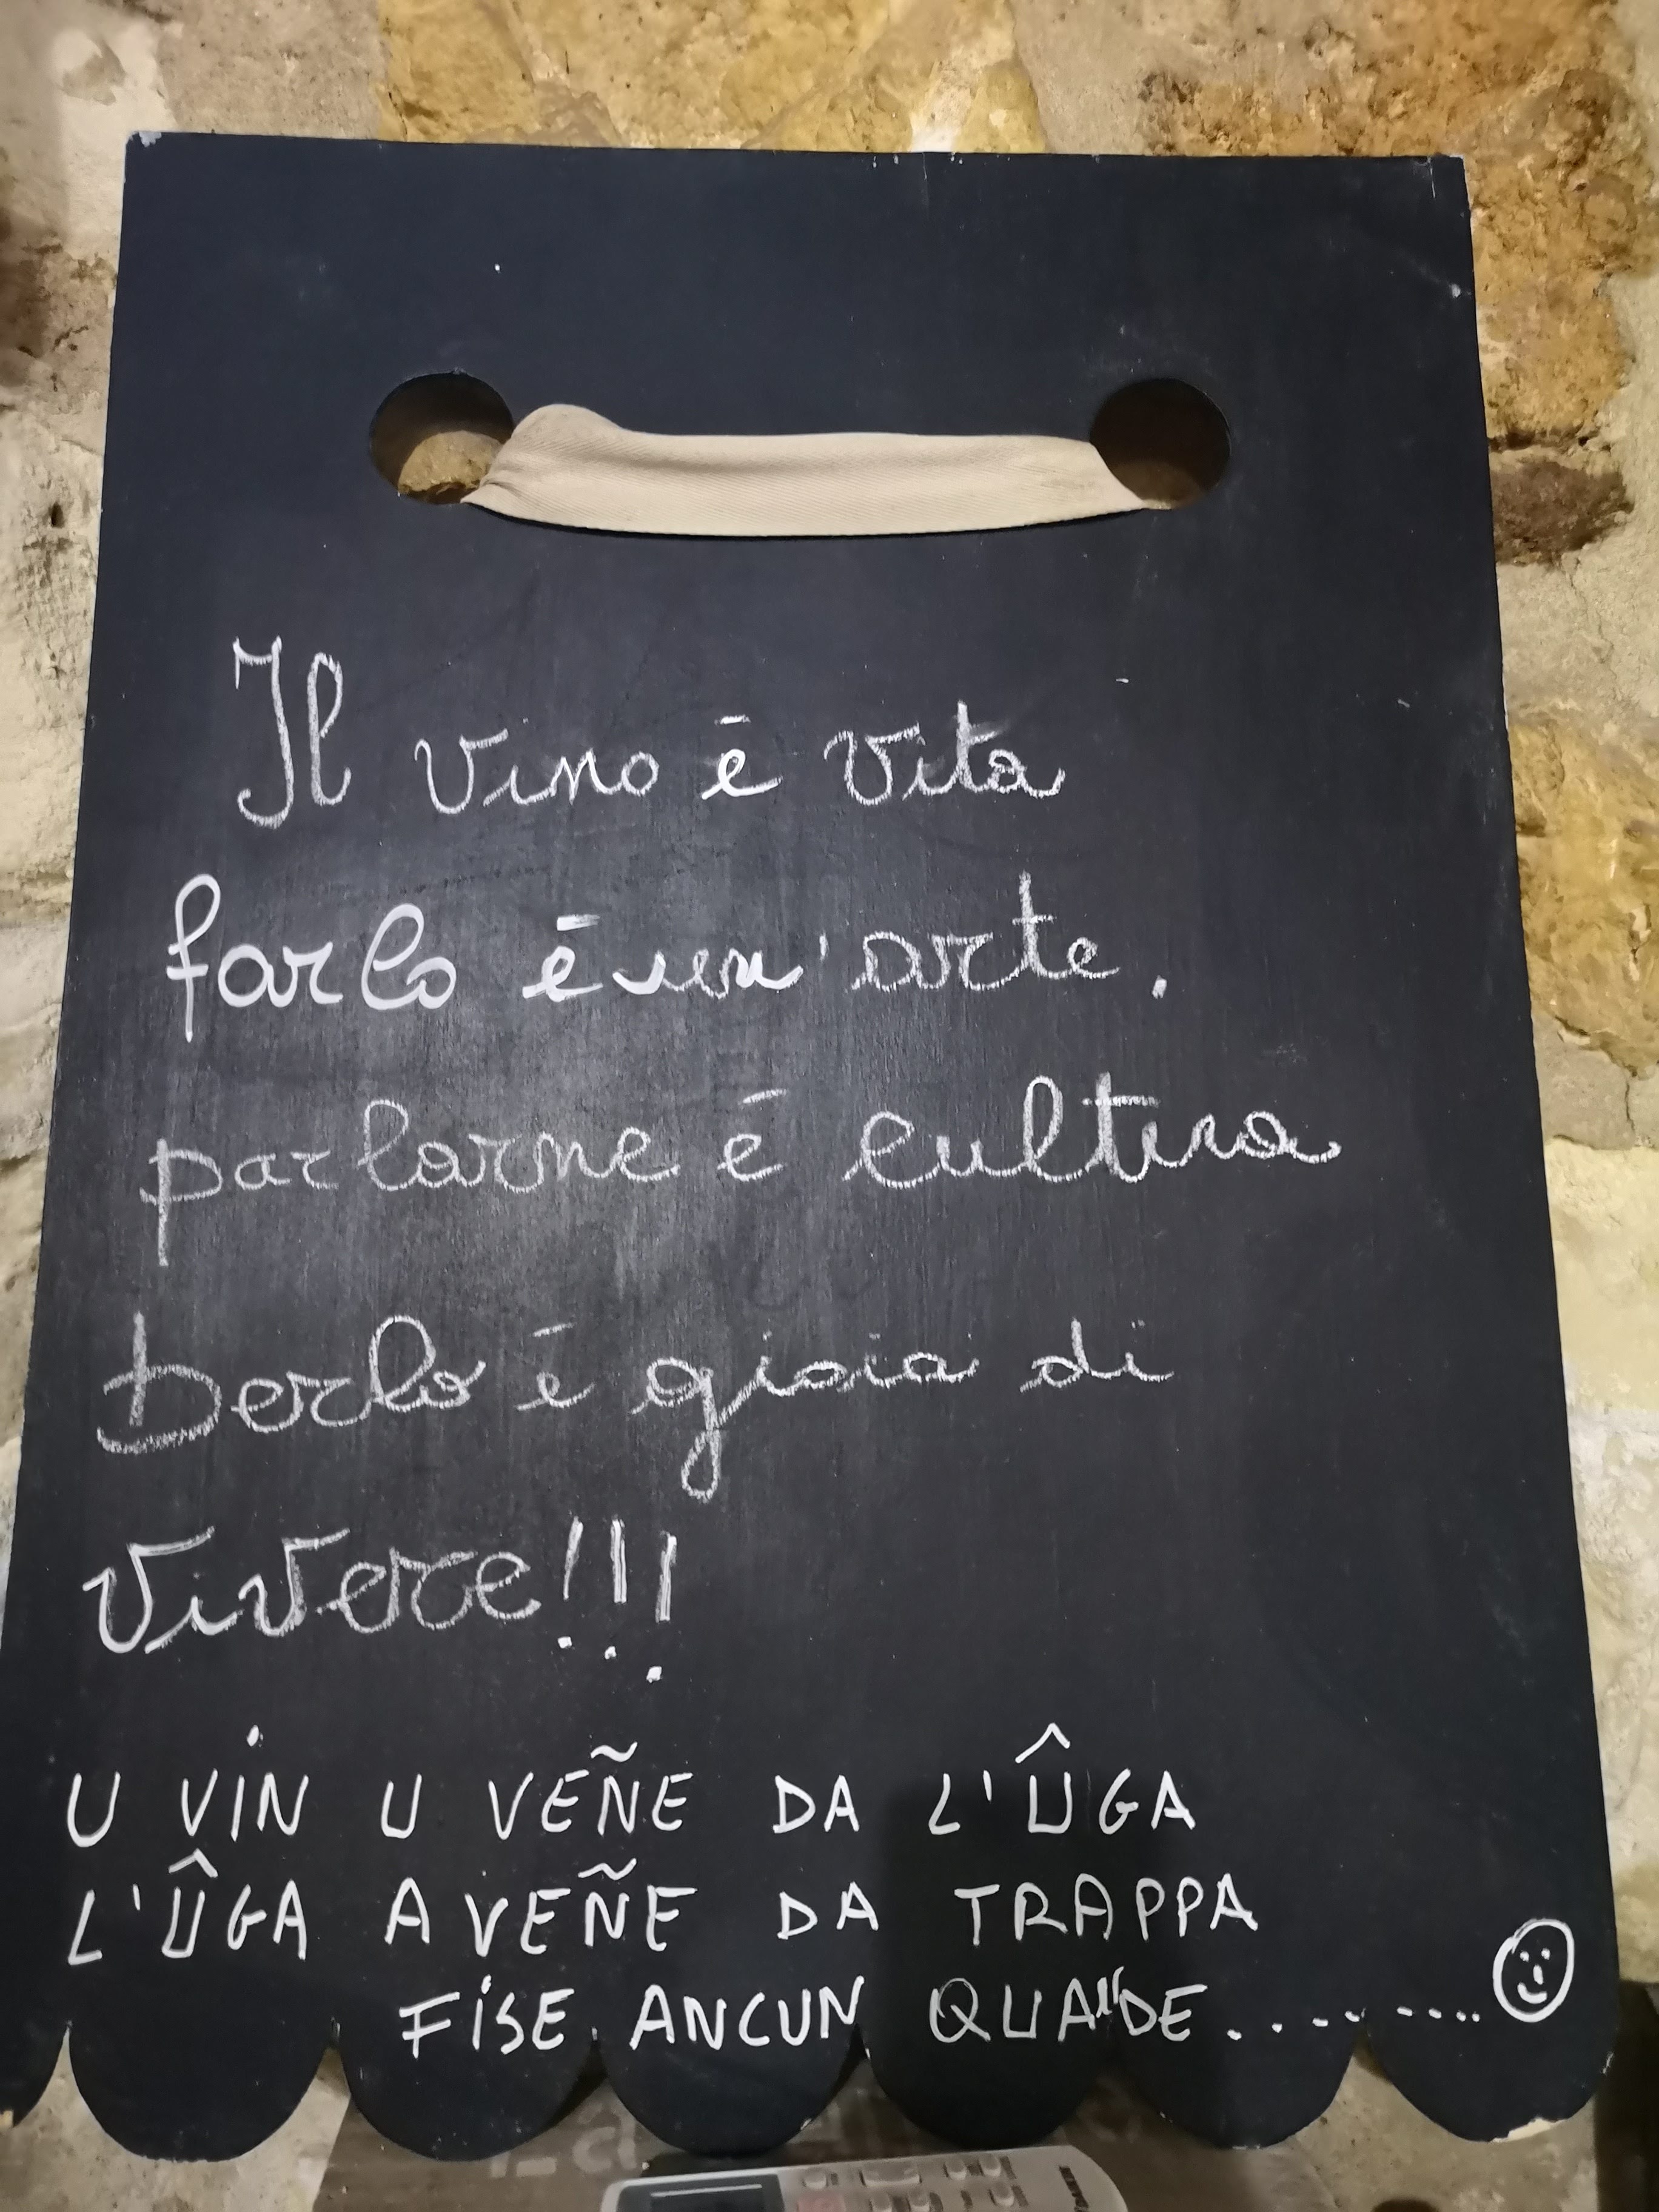 Il vino ē vita
farlo ē un'arte.
parlarne ē cultura
berlo ē gioia di
vivere!!!
U VIN U VEÑE DA L'ÛGA
L'ÛGA A VEÑE DA TRAPPA
FISE ANCUN QUANDE.........